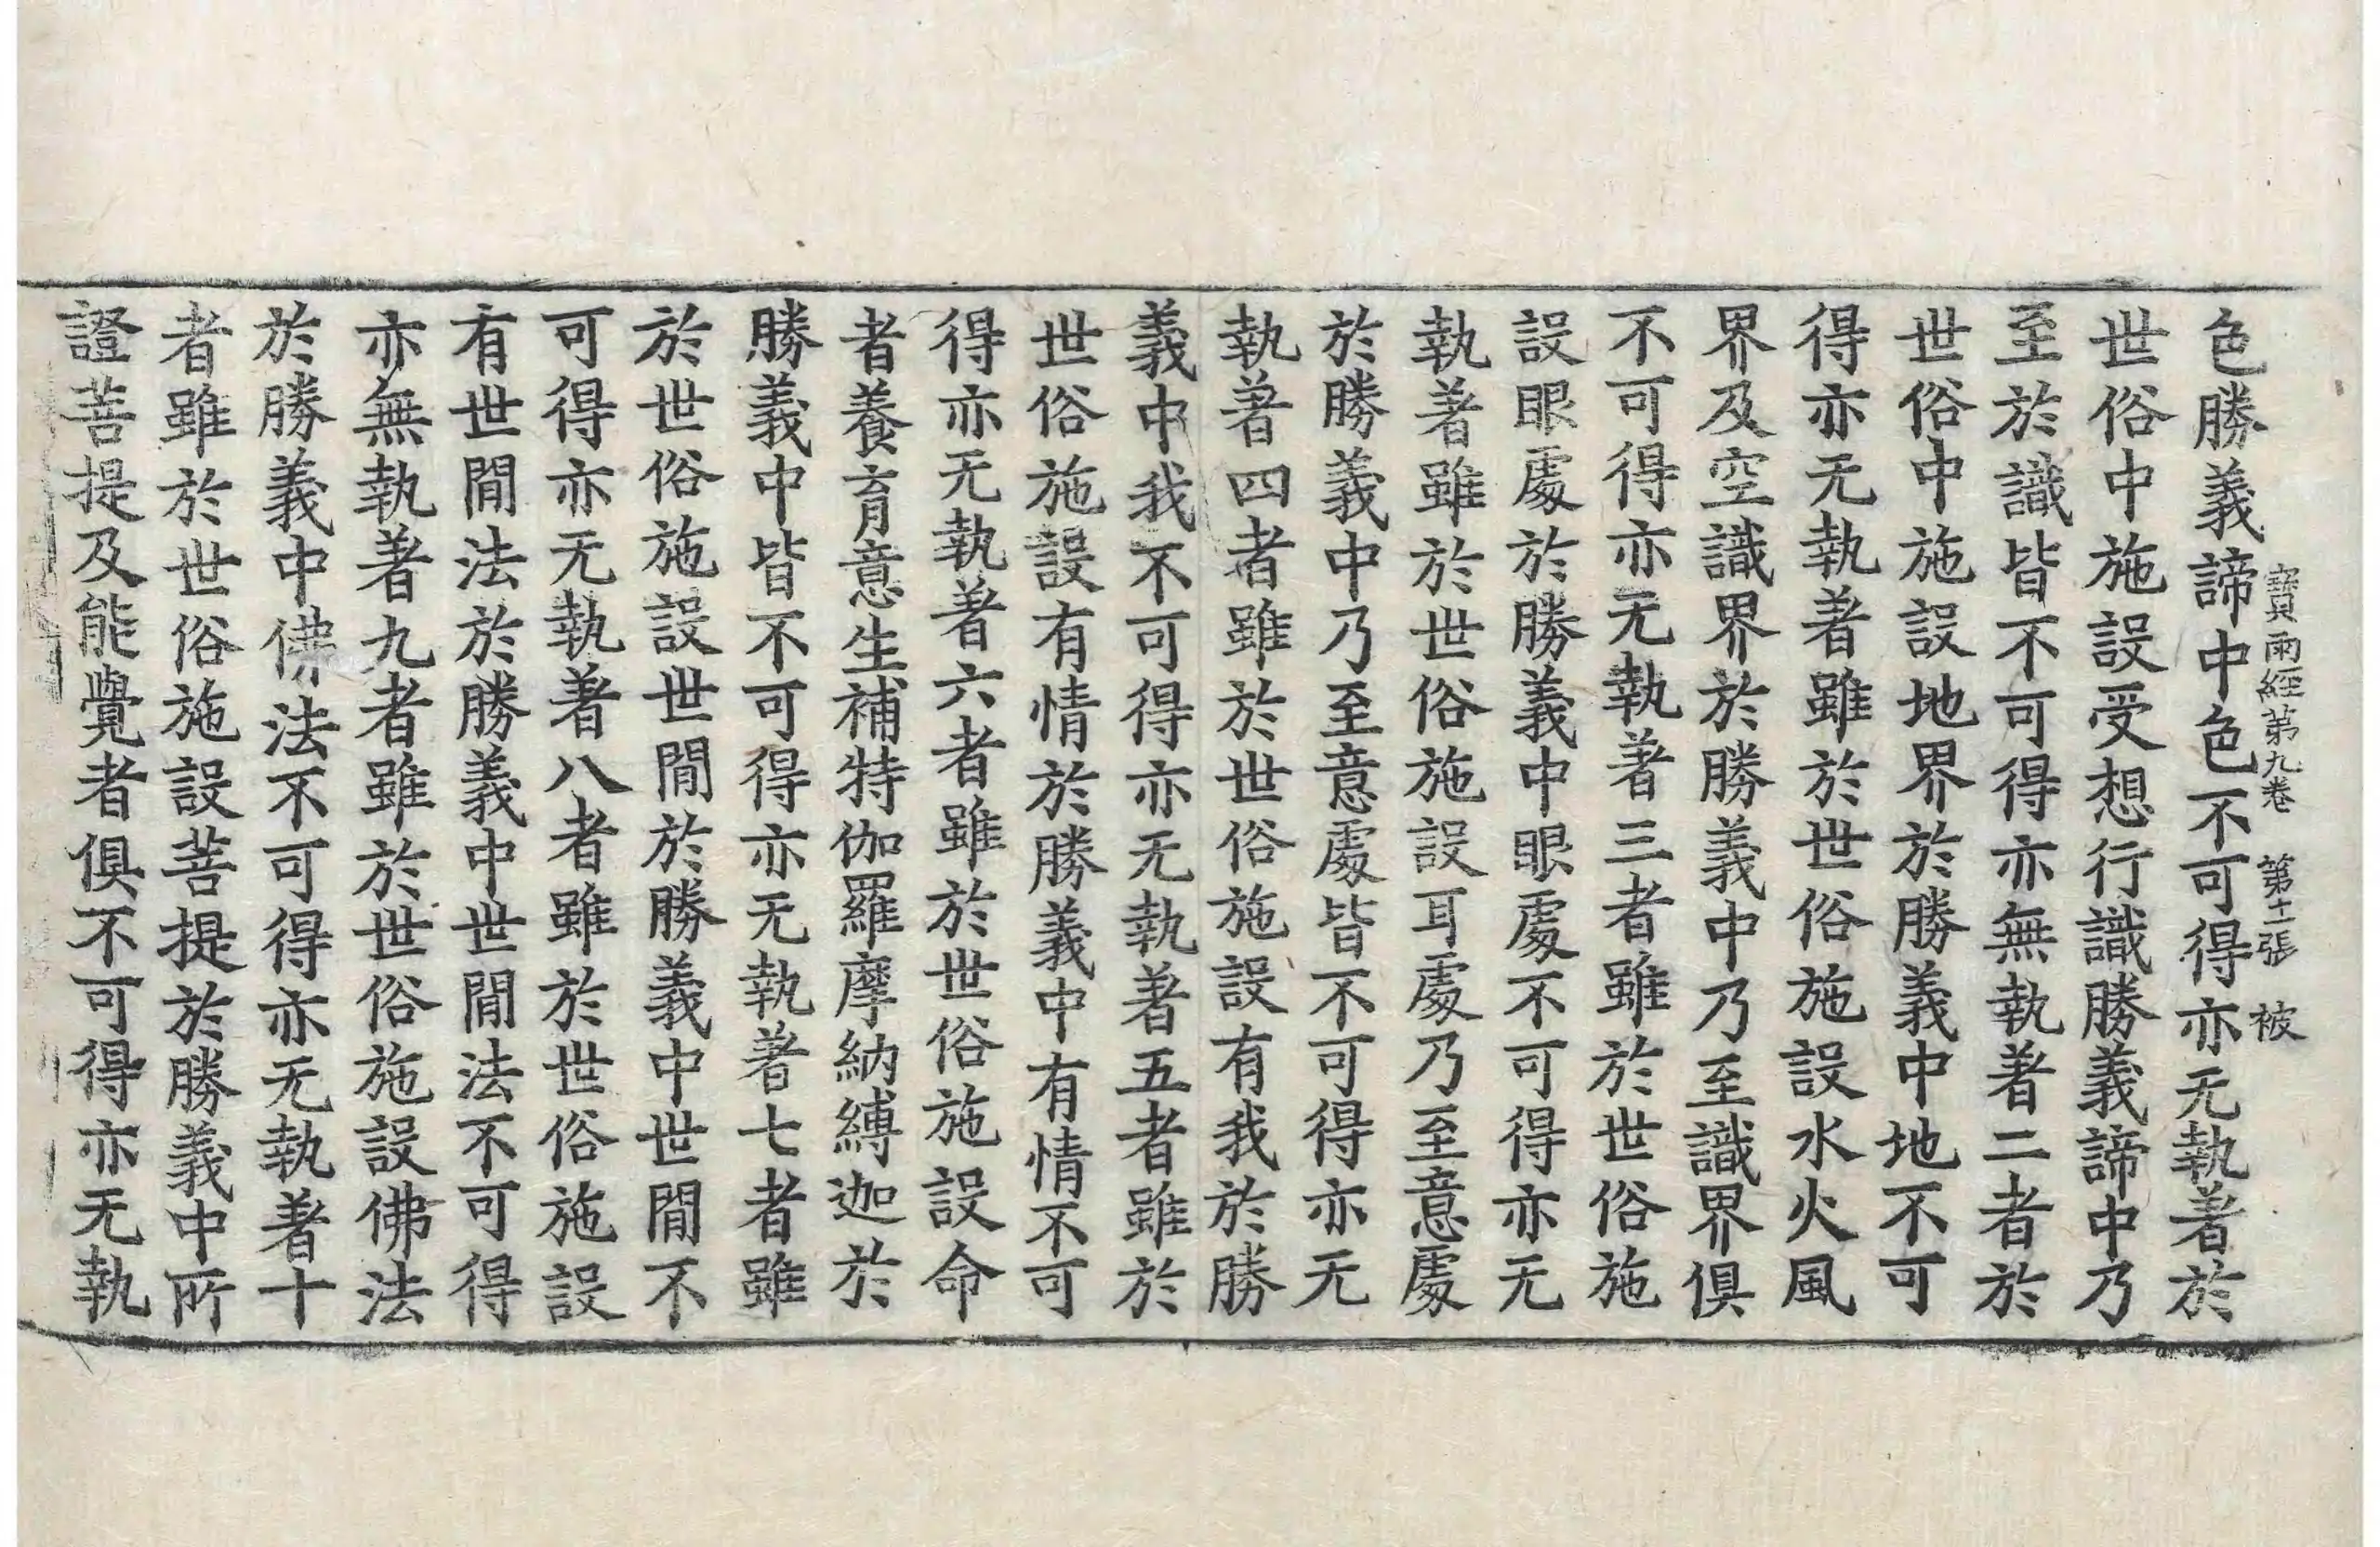 寶雨經第九卷 第十一張 被
色勝義諦中色不可得亦无執著於
世俗中施設受想行識勝義諦中乃
至於識皆不可得亦無執著二者於
世俗中施設地界於勝義中地不可
得亦无執著雖於世俗施設水火風
界及空識界於勝義中乃至識界俱
不可得亦无執著三者雖於世俗施
設眼處於勝義中眼處不可得亦无
執著雖於世俗施設耳處乃至意處
於勝義中乃至意處皆不可得亦无
執著四者雖於世俗施設有我於勝
義中我不可得亦无執著五者雖於
世俗施設有情於勝義中有情不可
得亦无執著六者雖於世俗施設命
者養育意生補特伽羅摩納縛迦於
勝義中皆不可得亦无執著七者雖
於世俗施設世閒於勝義中世閒不
可得亦无執著八者雖於世俗施設
有世閒法於勝義中世閒法不可得
亦無執著九者雖於世俗施設佛法
於勝義中佛法不可得亦无執著十
者雖於世俗施設菩提於勝義中所
證菩提及能覺者俱不可得亦无執